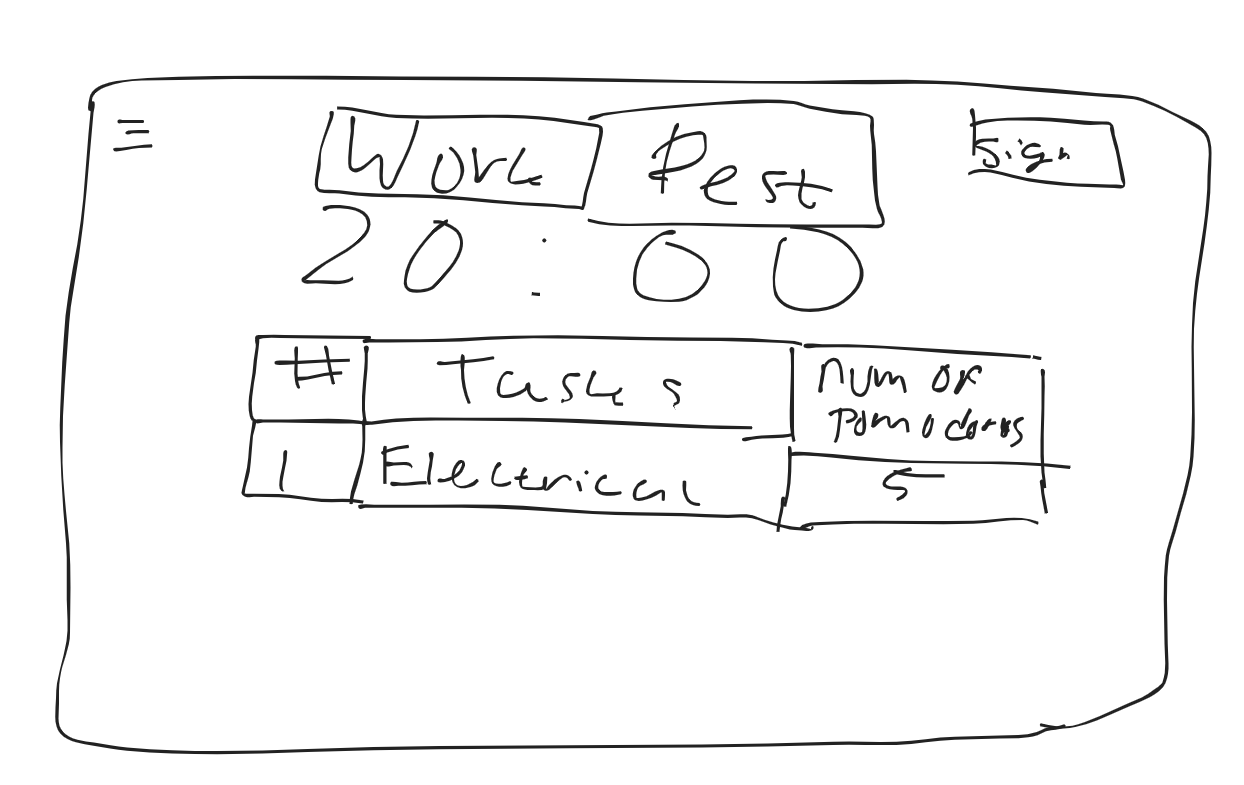 Work Rest Sign
20:00
# Tasks num of
pomodoros
1 Electrical 5